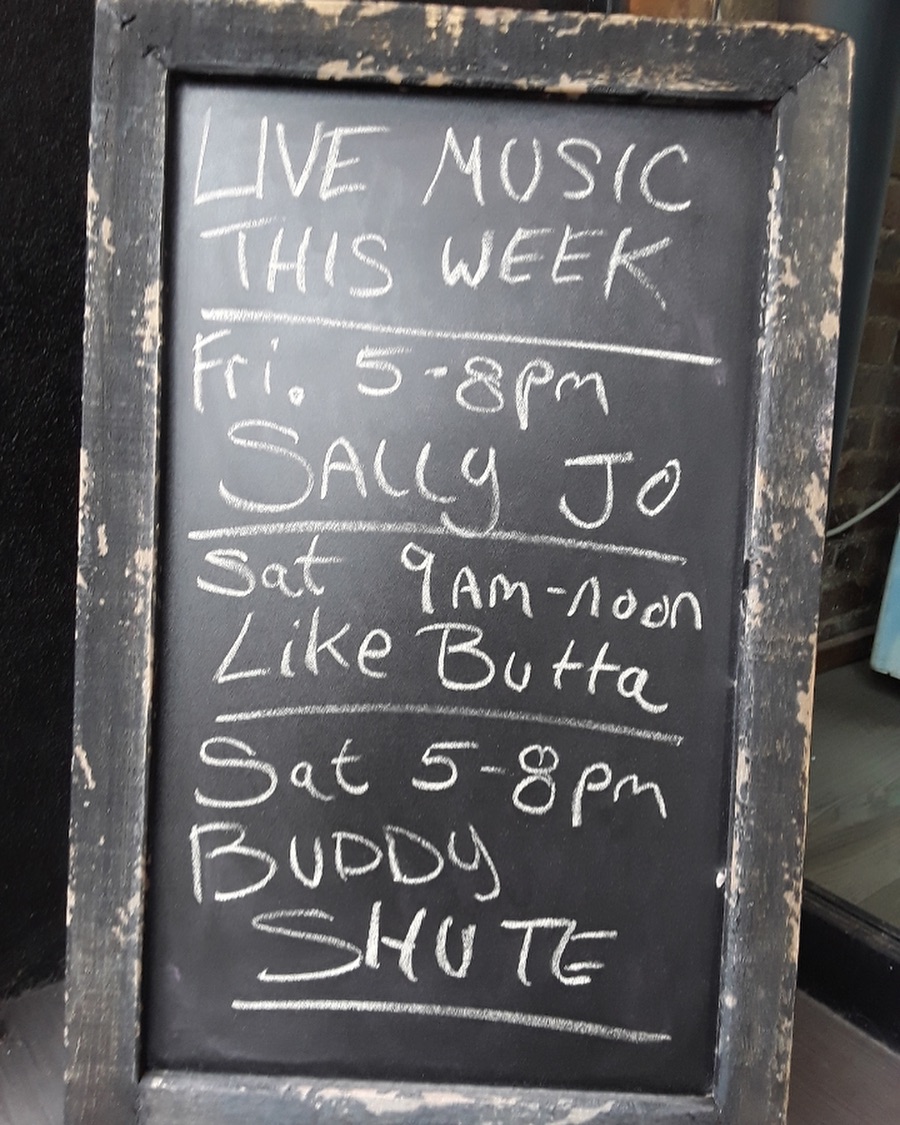 LIVE MUSIC
THIS WEEK
Fri. 5-8pm
SALLY JO
Sat 9AM-noon
Like Butta
Sat 5-8pm
BUDDY
SHUTE